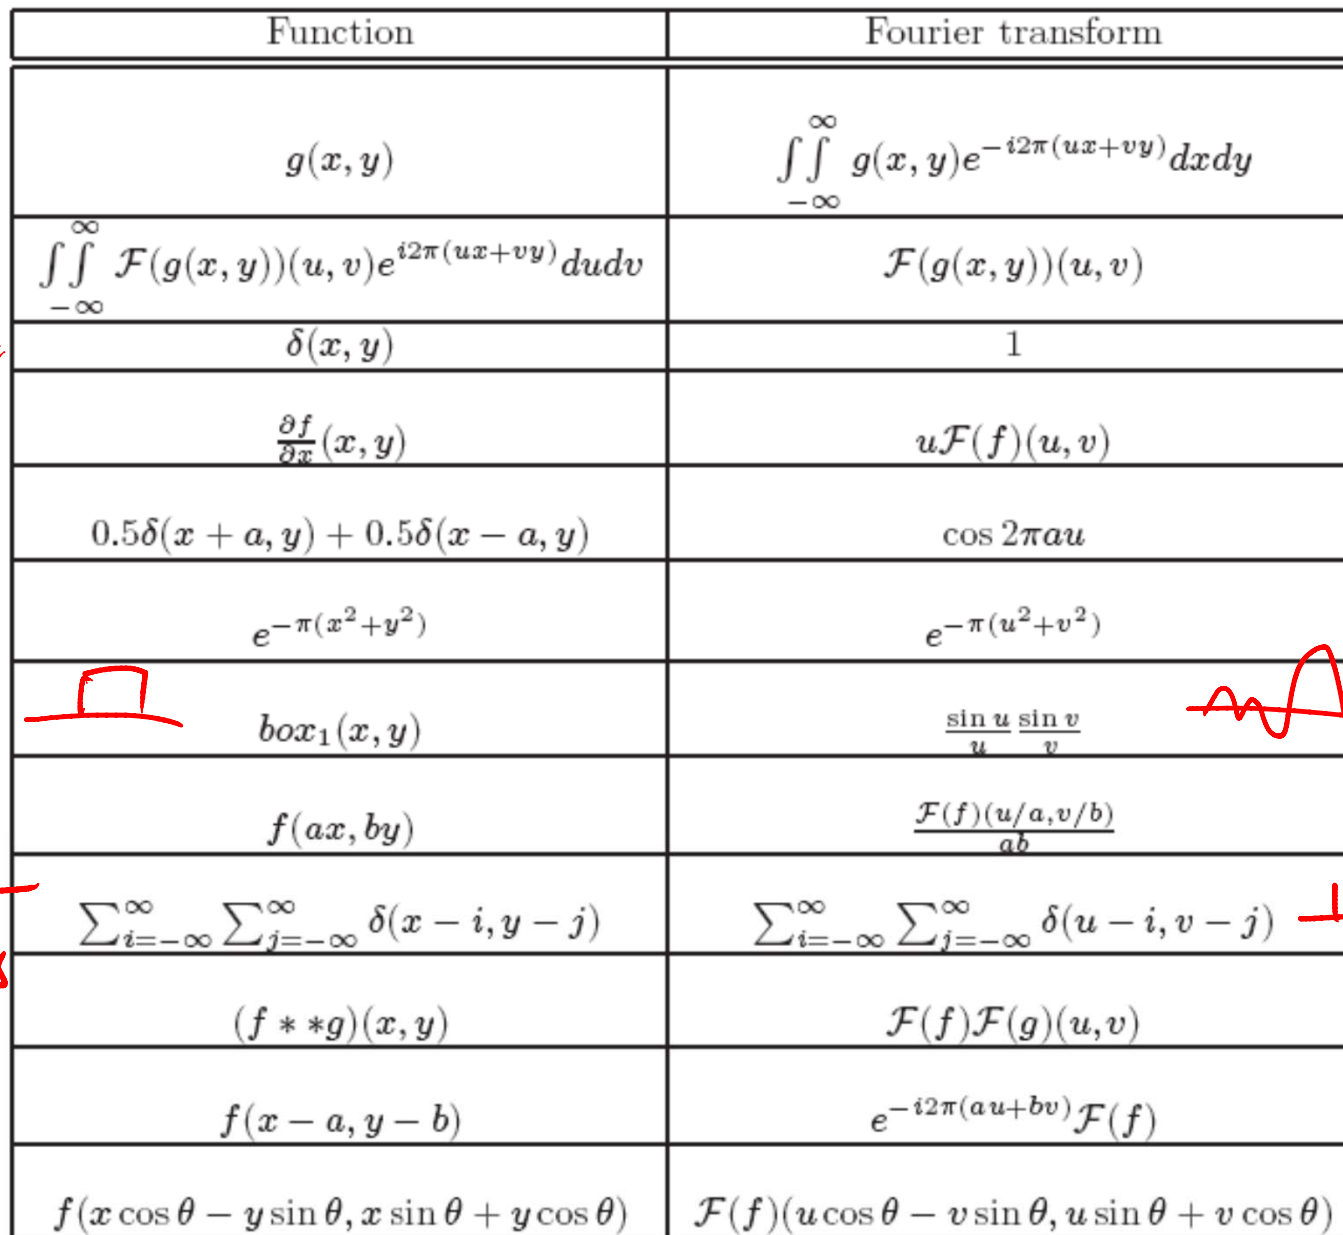 Function Fourier transform
g(x, y) ∫∫_{-∞}^{∞} g(x, y)e^{-i2π(ux+vy)}dxdy
∫∫_{-∞}^{∞} ℱ(g(x, y))(u, v)e^{i2π(ux+vy)}dudv ℱ(g(x, y))(u, v)
δ(x, y) 1
∂f/∂x (x, y) uℱ(f)(u, v)
0.5δ(x + a, y) + 0.5δ(x − a, y) cos 2πau
e^{-π(x²+y²)} e^{-π(u²+v²)}
box₁(x, y) sin u/u sin v/v
f(ax, by) ℱ(f)(u/a,v/b)/ab
∑_{i=-∞}^{∞} ∑_{j=-∞}^{∞} δ(x − i, y − j) ∑_{i=-∞}^{∞} ∑_{j=-∞}^{∞} δ(u − i, v − j)
(f ∗ ∗g)(x, y) ℱ(f)ℱ(g)(u, v)
f(x − a, y − b) e^{-i2π(au+bv)}ℱ(f)
f(x cos θ − y sin θ, x sin θ + y cos θ) ℱ(f)(u cos θ − v sin θ, u sin θ + v cos θ)